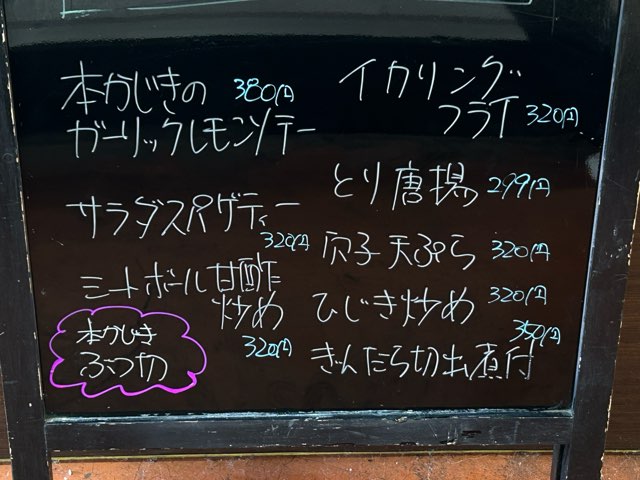 本かじきの 380円
ガーリックレモンソテー
サラダスパゲティー
320円
ミートボール甘酢
炒め
320円
本かじき
ぶつ切
イカリング
フライ 320円
とり唐揚 299円
穴子天ぷら 320円
ひじき炒め 320円
350円
きんだら切出煮付